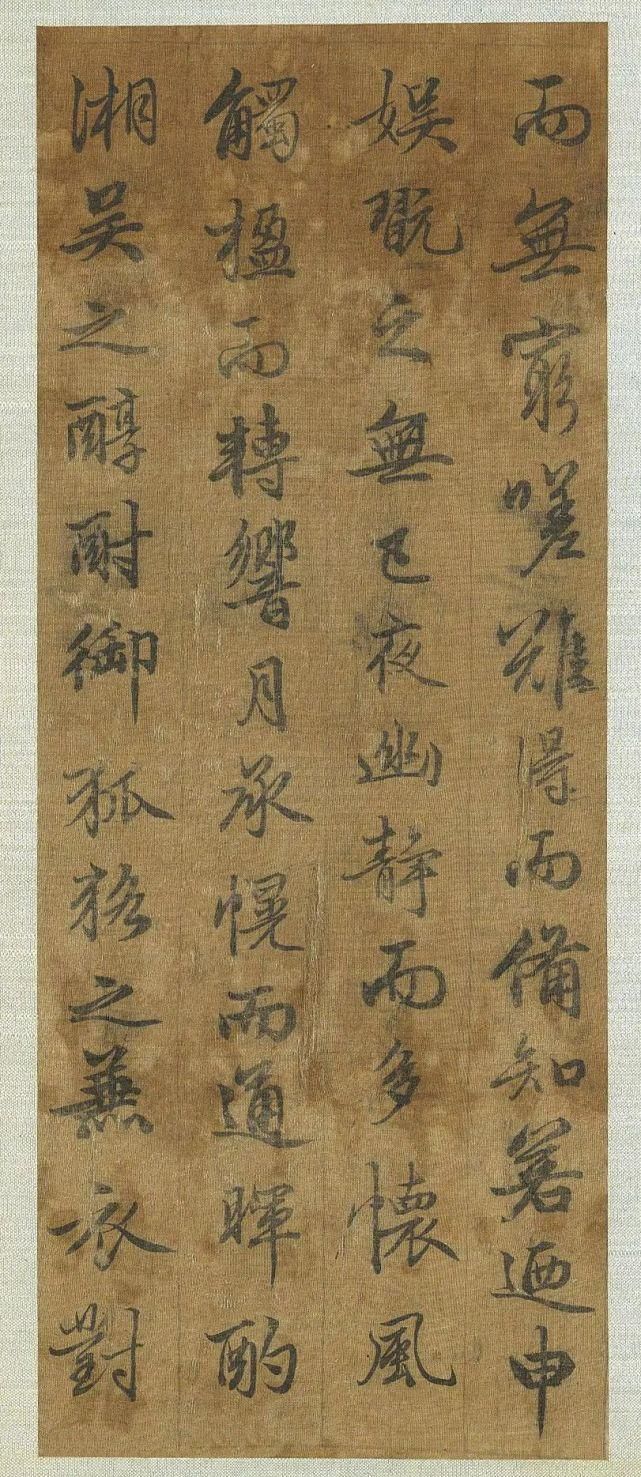 而無窮嗟難得而備知若迺申
娱翫之無已夜幽静而多懷風
觸楹而轉響月承幌而通暉酌
湘吴之醇酎御狐狢之兼衣對